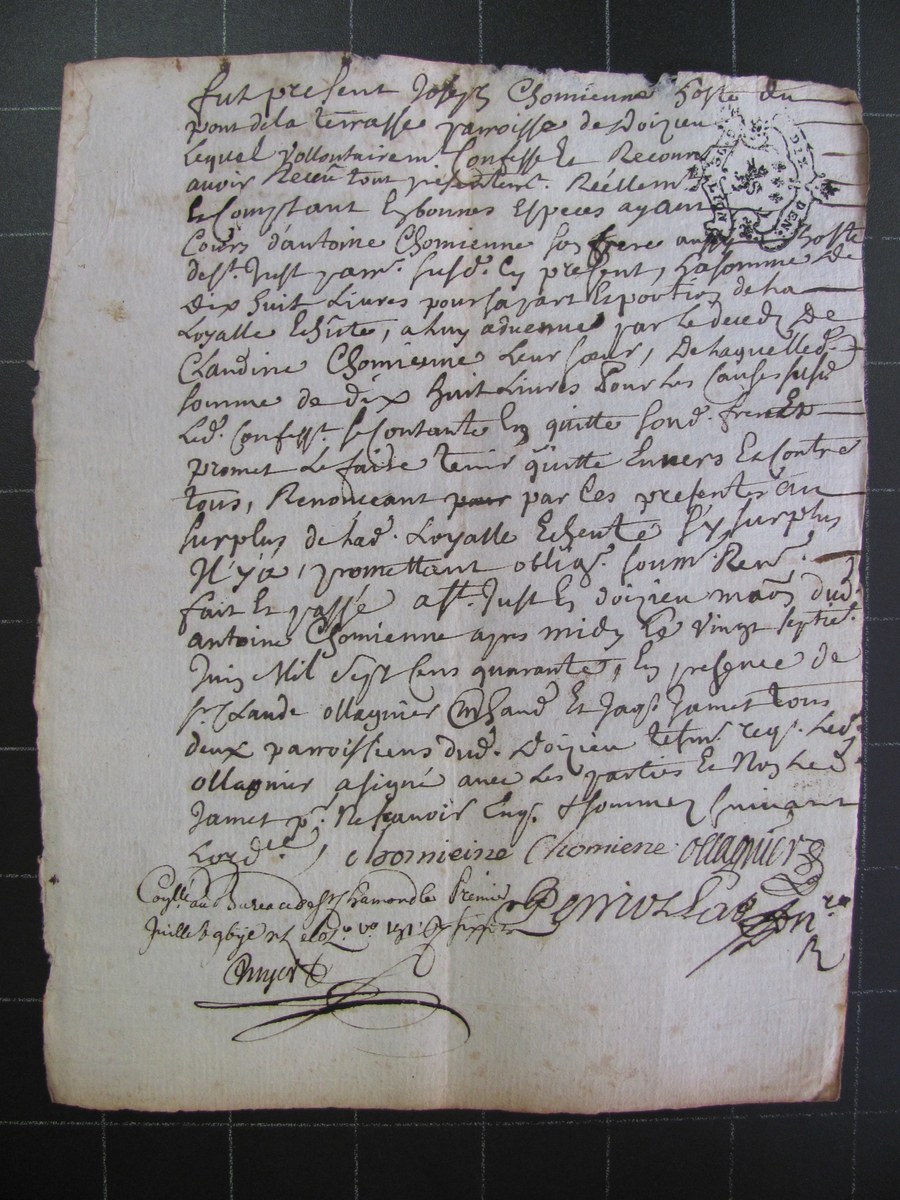 fut present Joseph Chomienne hoste du
pont de la terrasse parroisse de doizieu
Lequel vollontairem.t Confesse Et Reconn
avoir Receu tout présentem.t Réellem.t
Et Comptant En bonnes Especes ayant
Cours d'antoine Chomienne son frere aussy hoste
de s.t Just parr. susd. Cy present, La somme de
dix huit Livres pour sa part Et portion de La
Loyalle Echûte, a luy advenue par le deced de
Claudine Chomienne Leur sœur, De laquelle d.
somme de dix huit Livres Pour Les Causes susd.
Led. Confess.t se Contante En quitte sond. frere Et
promet Le faire tenir quitte Envers Et Contre
tous, Renonceant pour par Ces presentes au
surplus de lad. Loyalle Echeute sy surplus
Il y a, promettant oblig. soum. Ren.
fait Et passé a s.t Just En doizieu maōn dud.
antoine Chomienne apres midy Le vingt septie.
Juin Mil sept Cens quarante, En presence de
s.r Claude ollagnier Mchand Et Jaq. Jamet tous
deux parroissiens dud. Doizieu tesm. req. Led.
ollagnier a signé avec Les parties Et Non Led.
Jamet p.r Ne scavoir Enq. & sommez suivant
Lord.ce
chomieinne Chomiene ollagnier
Conllé au Bureau de St Chamond le Premier
Juillet
DIX DEN.
LYON